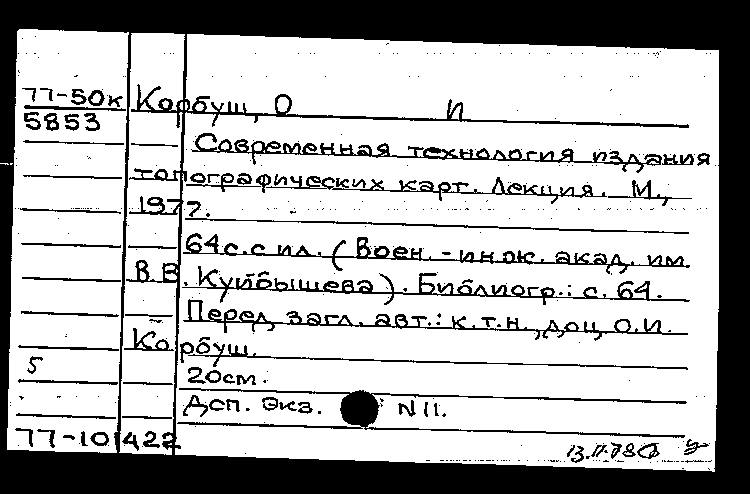 77-50к Корбуш, О И
5853
Современная технология издания
топографических карт. Лекция. М.,
1977.
64с.с ил. (Воен.-инж. акад. им.
В.В. Куйбышева). Библиогр.: с. 64.
Перед загл. авт.: к.т.н., доц. О.И.
Корбуш.
5
20см.
Дсп. Экз. N11.
77-101422